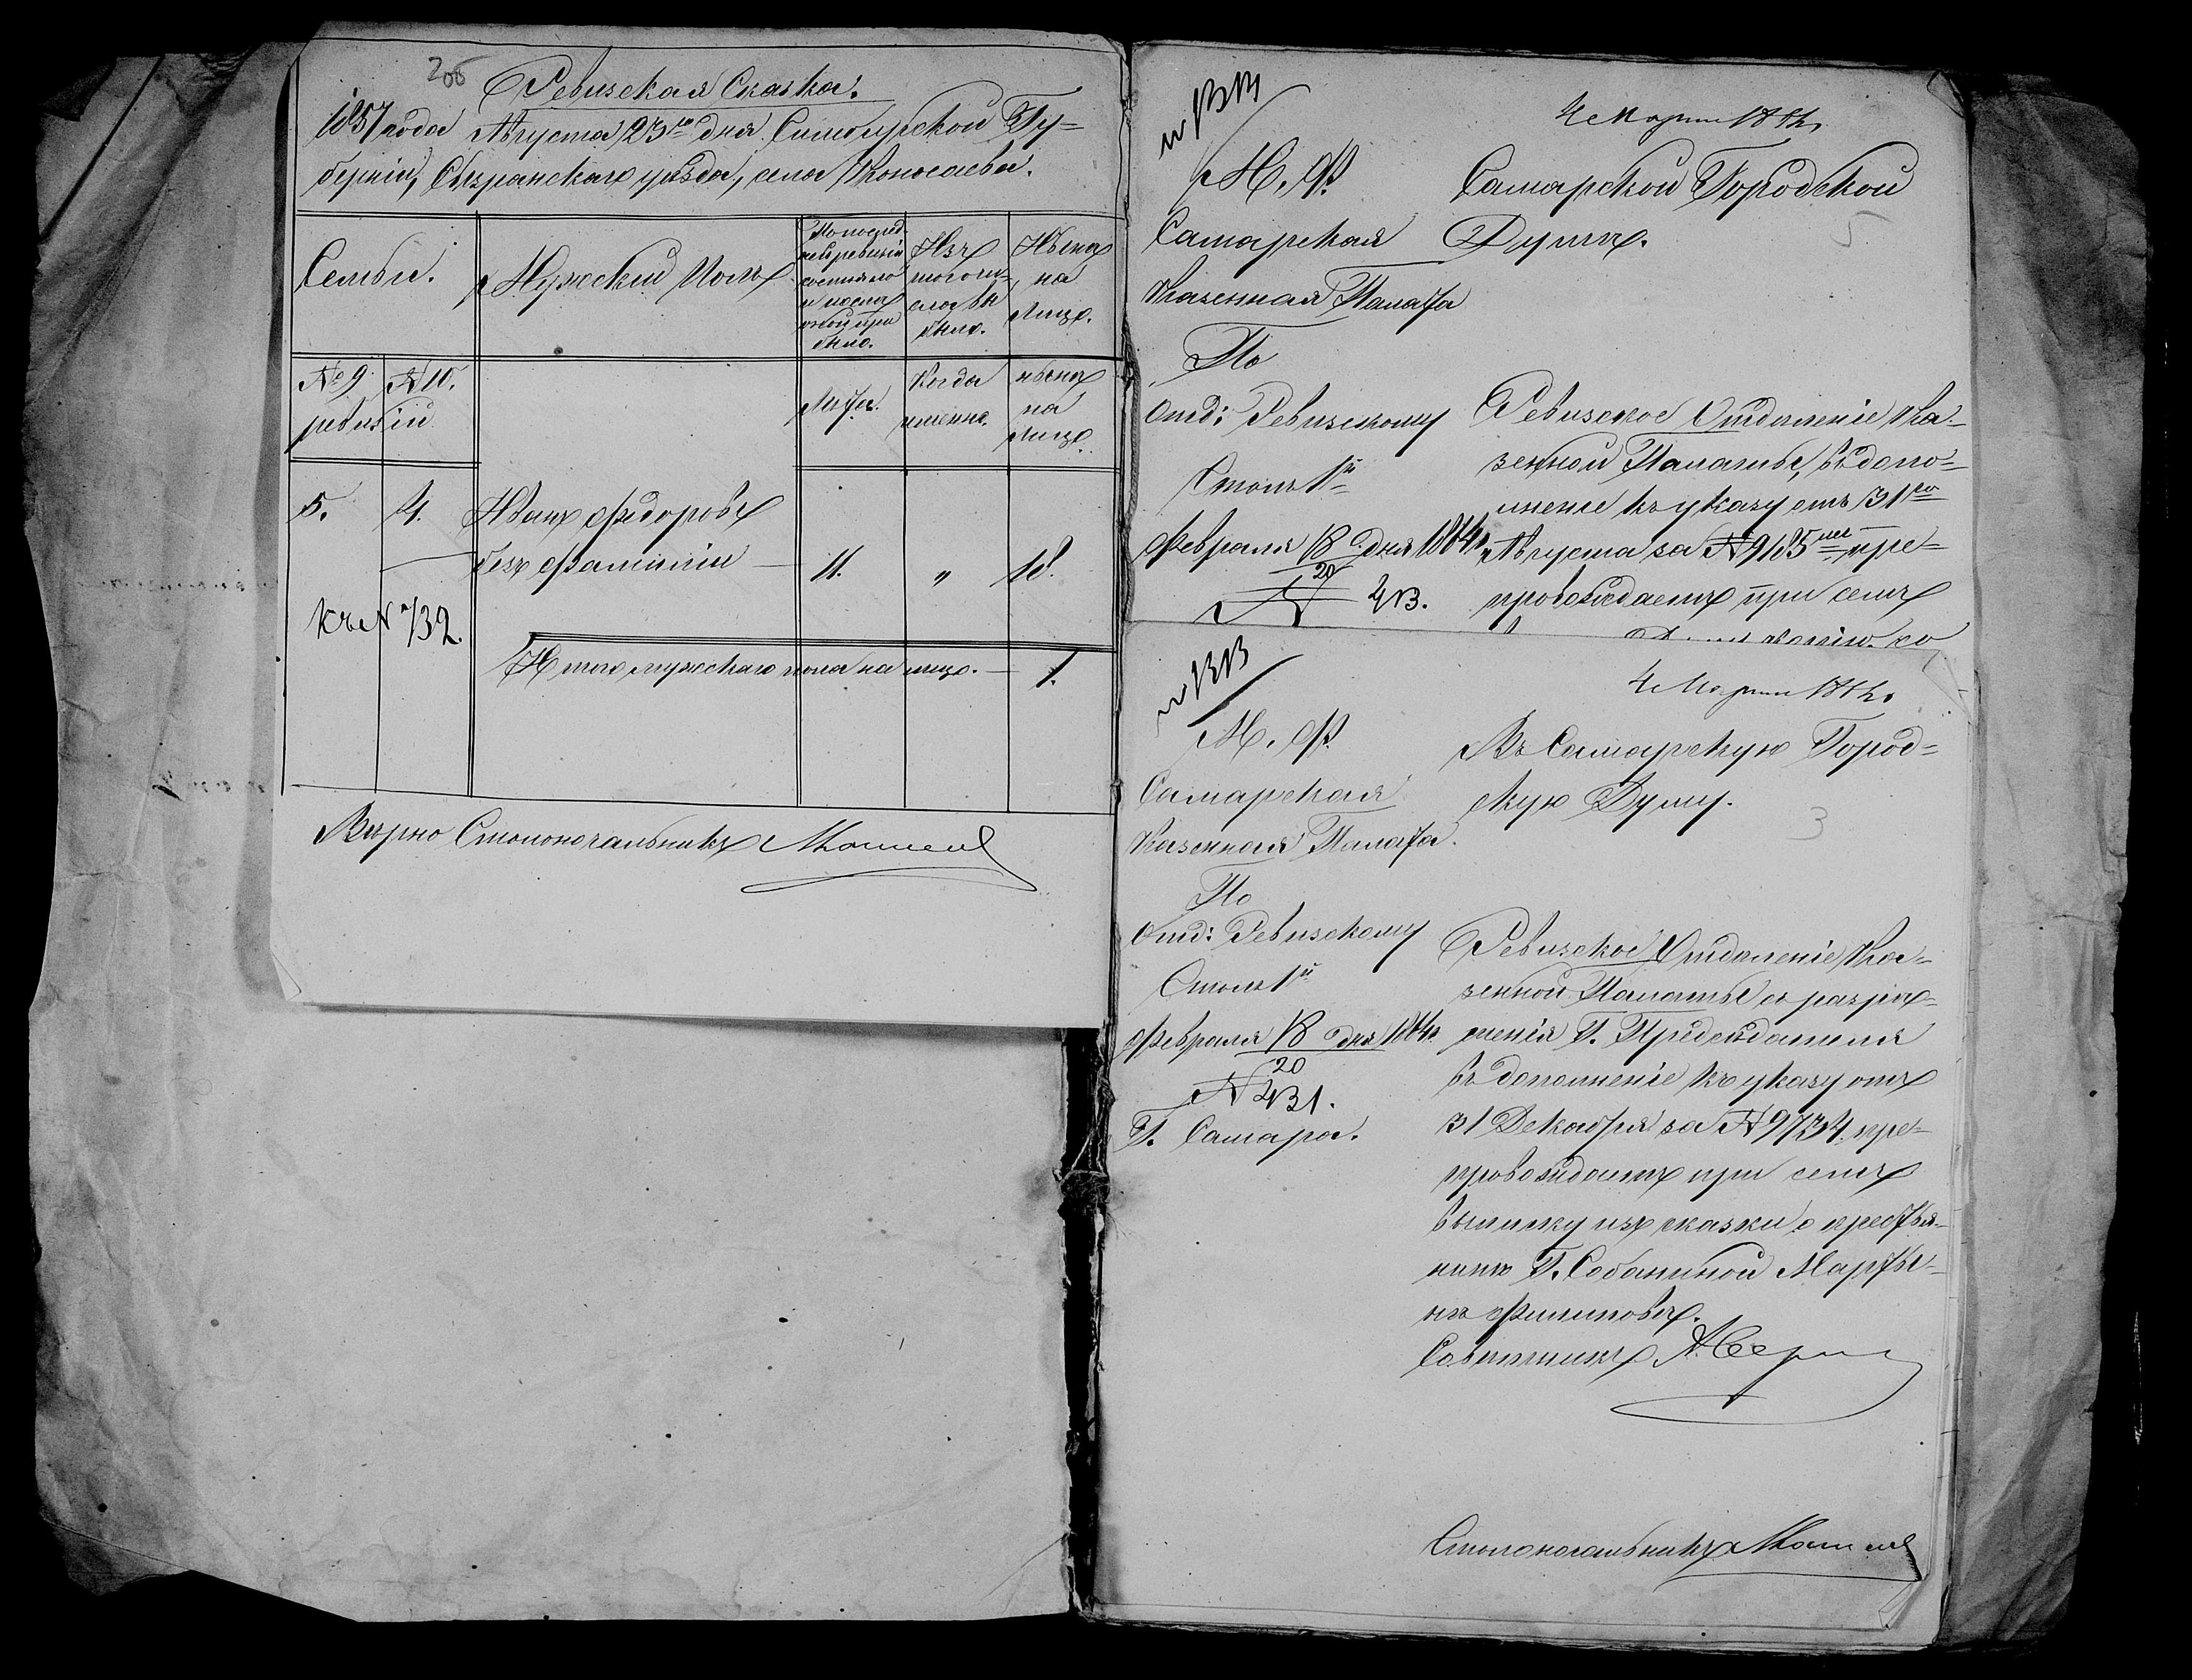 206
Ревизская Сказка.
1857 года Августа 23го дня Симбирской Гу=
берніи, Сызранскаго уѣзда, села
Семьи.
Мужескій Полъ
По послѣд.
ней ревизіи
состояло
и послѣ
оной при
было.
Изъ
того чи-
сла вы
было.
Нынѣ
на
лицо.
№ 9. № 10.
ревизіи
Лѣта.
Когда
именно.
нынѣ
на
лицо.
5. 4. Иванъ Федоровъ
безъ фамиліи — 11. „ 18.
Къ № 732.
Итого мужескаго пола на лицо. — 1.
Вѣрно Столоначальникъ
М. Ф.
Самарская
Казенная Палата
По
Отд: Ревизскому
Столъ 1й
Февраля 18 дня 1864 г.
20
№
4 Марта
Самарской Городской
Думѣ.
5
Ревизское Отдѣленіе Ка-
зенной Палаты, въ допо=
лненіе къ указу отъ 31го
Августа за № 9185 пре=
провождаетъ при семъ
копію со
М. Ф.
Самарская
Казенная Палата.
По
Отд: Ревизскому
Столъ 1й
Февраля 18 дня 1864 г.
20
№ 431.
Г. Самара.
4 Марта
Въ Самарскую Город=
скую Думу.
3
Ревизское Отдѣленіе Ка-
зенной Палаты съ разрѣ-
шенія Г. Предсѣдателя
въ дополненіе къ указу отъ
31 Декабря за № 9734. пре-
провождаетъ при семъ
выписку изъ сказки о крестья-
нинѣ Г. Собаниной Марты-
нѣ Филиповѣ.
Совѣтникъ
Столоначальникъ